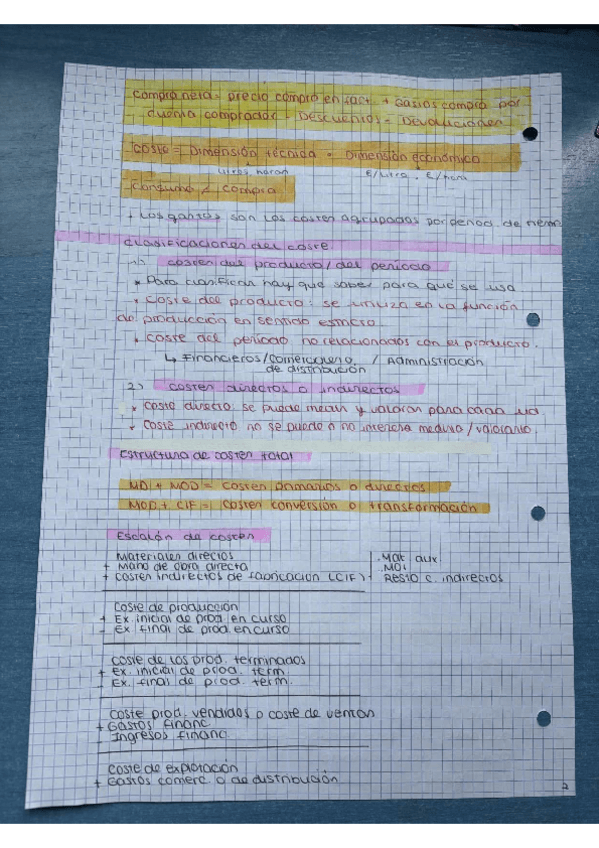 Compra neta = precio compra en fact. + Gastos compra por
cuenta comprador - Descuentos - Devoluciones
Coste = Dimensión técnica · Dimensión económica
litros, horas €/litro, €/hora
Consumo ≠ compra
* Los gastos son los costes agrupados por period. de tiempo
Clasificaciones del coste
1) costes del producto/del periodo
* Para clasificar hay que saber para que se usa
* Coste del producto: se utiliza en la función
de producción en sentido estricto
* Coste del periodo no relacionados con el producto.
↳ Financieros/comerciales o de distribución / Administración
2) costes directos o indirectos
* Coste directo: se puede medir y valorar para cada ud.
* Coste indirecto no se puede o no interesa medirlo/valorarlo.
Estructura de costes total
MD + MOD = Costes primarios o directos
MOD + CIF = Costes conversión o transformación
Escalón de costes
Materiales directos
+ Mano de obra directa
+ Costes indirectos de fabricación (CIF)
Mat aux.
MOI
Resto c. indirectos
Coste de producción
+ Ex inicial de prod en curso
- Ex final de prod. en curso
Coste de los prod. terminados
+ Ex. inicial de prod. term
- Ex. final de prod. term.
Coste prod. vendidos o coste de ventas
+ Gastos financ
- Ingresos financ
Coste de explotación
+ Gastos comerc. o de distribución
2